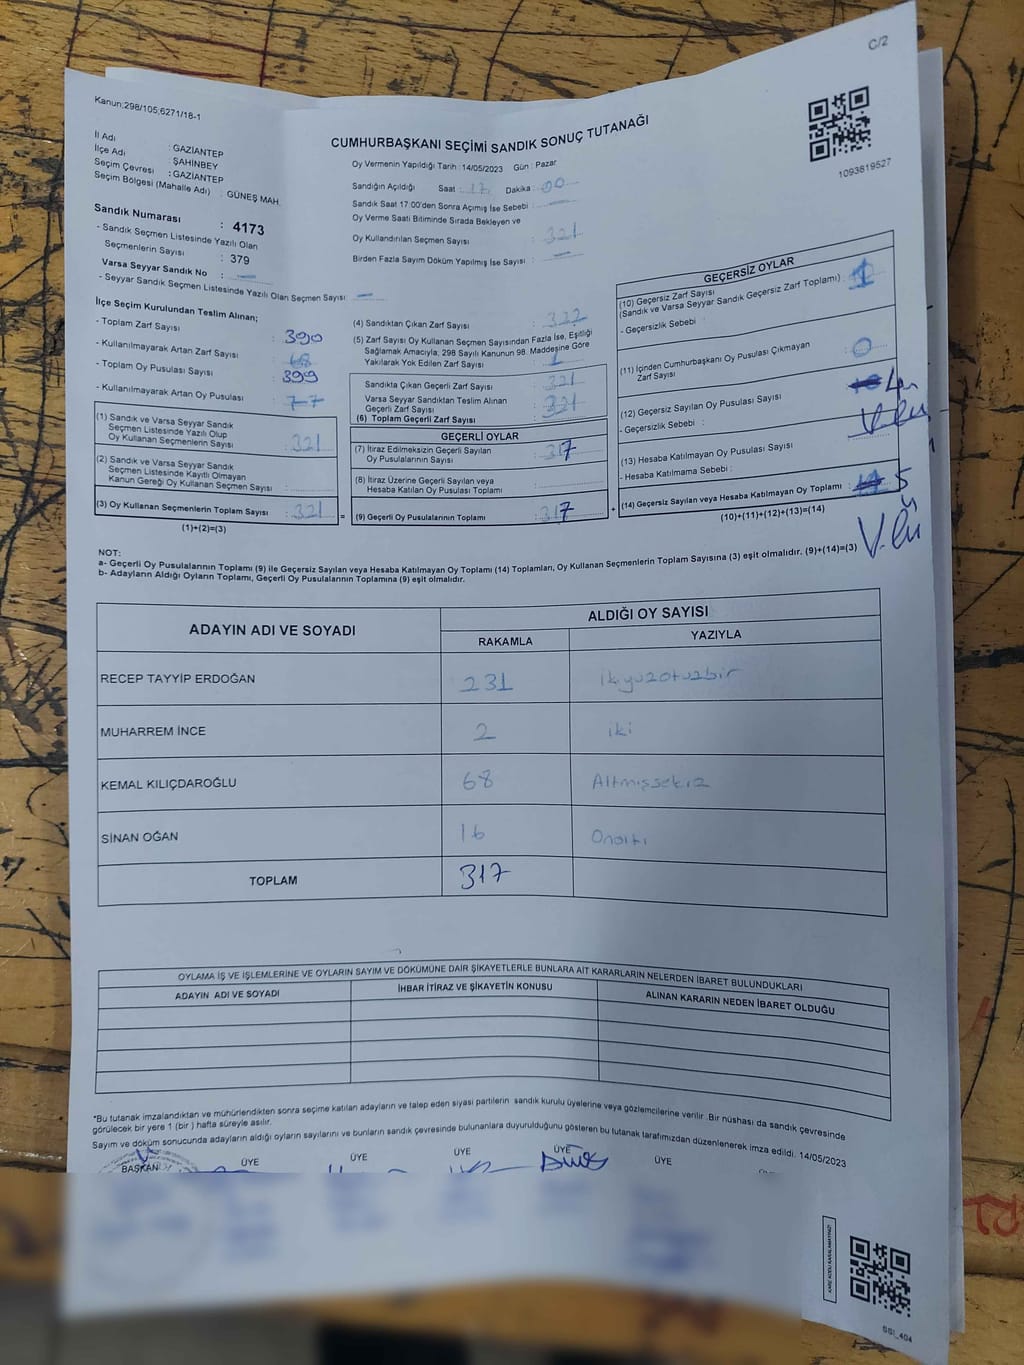 C/2
Kanun:298/105;6271/18-1
CUMHURBAŞKANI SEÇİMİ SANDIK SONUÇ TUTANAĞI
1093619527
İl Adı : GAZİANTEP
İlçe Adı : ŞAHİNBEY
Seçim Çevresi : GAZİANTEP
Seçim Bölgesi (Mahalle Adı) : GÜNEŞ MAH.
Sandık Numarası : 4173
- Sandık Seçmen Listesinde Yazılı Olan
Seçmenlerin Sayısı : 379
Varsa Seyyar Sandık No : —
- Seyyar Sandık Seçmen Listesinde Yazılı Olan Seçmen Sayısı : —
Oy Vermenin Yapıldığı Tarih : 14/05/2023 Gün : Pazar
Sandığın Açıldığı Saat : 17 Dakika : 00
Sandık Saat 17:00'den Sonra Açımış İse Sebebi : —
Oy Verme Saati Bitiminde Sırada Bekleyen ve
Oy Kullandırılan Seçmen Sayısı : 321
Birden Fazla Sayım Döküm Yapılmış İse Sayısı : —
İlçe Seçim Kurulundan Teslim Alınan;
- Toplam Zarf Sayısı : 390
- Kullanılmayarak Artan Zarf Sayısı : 68
- Toplam Oy Pusulası Sayısı : 399
- Kullanılmayarak Artan Oy Pusulası : 77
(1) Sandık ve Varsa Seyyar Sandık
Seçmen Listesinde Yazılı Olup
Oy Kullanan Seçmenlerin Sayısı : 321
(2) Sandık ve Varsa Seyyar Sandık
Seçmen Listesinde Kayıtlı Olmayan
Kanun Gereği Oy Kullanan Seçmen Sayısı :
(3) Oy Kullanan Seçmenlerin Toplam Sayısı : 321 =
(1)+(2)=(3)
(4) Sandıktan Çıkan Zarf Sayısı : 322
(5) Zarf Sayısı Oy Kullanan Seçmen Sayısından Fazla İse, Eşitliği
Sağlamak Amacıyla, 298 Sayılı Kanunun 98. Maddesine Göre
Yakılarak Yok Edilen Zarf Sayısı : 1
Sandıkta Çıkan Geçerli Zarf Sayısı : 321
Varsa Seyyar Sandıktan Teslim Alınan
Geçerli Zarf Sayısı
(6) Toplam Geçerli Zarf Sayısı : 321
GEÇERLİ OYLAR
(7) İtiraz Edilmeksizin Geçerli Sayılan
Oy Pusulalarının Sayısı : 317
(8) İtiraz Üzerine Geçerli Sayılan veya
Hesaba Katılan Oy Pusulası Toplamı :
(9) Geçerli Oy Pusulalarının Toplamı : 317 +
GEÇERSİZ OYLAR
(10) Geçersiz Zarf Sayısı
(Sandık ve Varsa Seyyar Sandık Geçersiz Zarf Toplamı) : 1
- Geçersizlik Sebebi :
(11) İçinden Cumhurbaşkanı Oy Pusulası Çıkmayan
Zarf Sayısı : 0
(12) Geçersiz Sayılan Oy Pusulası Sayısı :
- Geçersizlik Sebebi :
(13) Hesaba Katılmayan Oy Pusulası Sayısı
- Hesaba Katılmama Sebebi :
(14) Geçersiz Sayılan veya Hesaba Katılmayan Oy Toplamı : 5
(10)+(11)+(12)+(13)=(14)
NOT:
a- Geçerli Oy Pusulalarının Toplamı (9) ile Geçersiz Sayılan veya Hesaba Katılmayan Oy Toplamı (14) Toplamları, Oy Kullanan Seçmenlerin Toplam Sayısına (3) eşit olmalıdır. (9)+(14)=(3)
b- Adayların Aldığı Oyların Toplamı, Geçerli Oy Pusulalarının Toplamına (9) eşit olmalıdır.
ADAYIN ADI VE SOYADI ALDIĞI OY SAYISI
RAKAMLA YAZIYLA
RECEP TAYYİP ERDOĞAN 231 ikiyuzotuzbir
MUHARREM İNCE 2 iki
KEMAL KILIÇDAROĞLU 68 Altmışsekiz
SİNAN OĞAN 16 Onaltı
TOPLAM 317
OYLAMA İŞ VE İŞLEMLERİNE VE OYLARIN SAYIM VE DÖKÜMÜNE DAİR ŞİKAYETLERLE BUNLARA AİT KARARLARIN NELERDEN İBARET BULUNDUKLARI
ADAYIN ADI VE SOYADI İHBAR İTİRAZ VE ŞİKAYETİN KONUSU ALINAN KARARIN NEDEN İBARET OLDUĞU
*Bu tutanak imzalandıktan ve mühürlendikten sonra seçime katılan adayların ve talep eden siyasi partilerin sandık kurulu üyelerine veya gözlemcilerine verilir .Bir nüshası da sandık çevresinde
görülecek bir yere 1 (bir ) hafta süreyle asılır.
Sayım ve döküm sonucunda adayların aldığı oyların sayılarını ve bunların sandık çevresinde bulunanlara duyurulduğunu gösteren bu tutanak tarafımızdan düzenlenerek imza edildi. 14/05/2023
BAŞKAN ÜYE ÜYE ÜYE ÜYE ÜYE
SSI_404